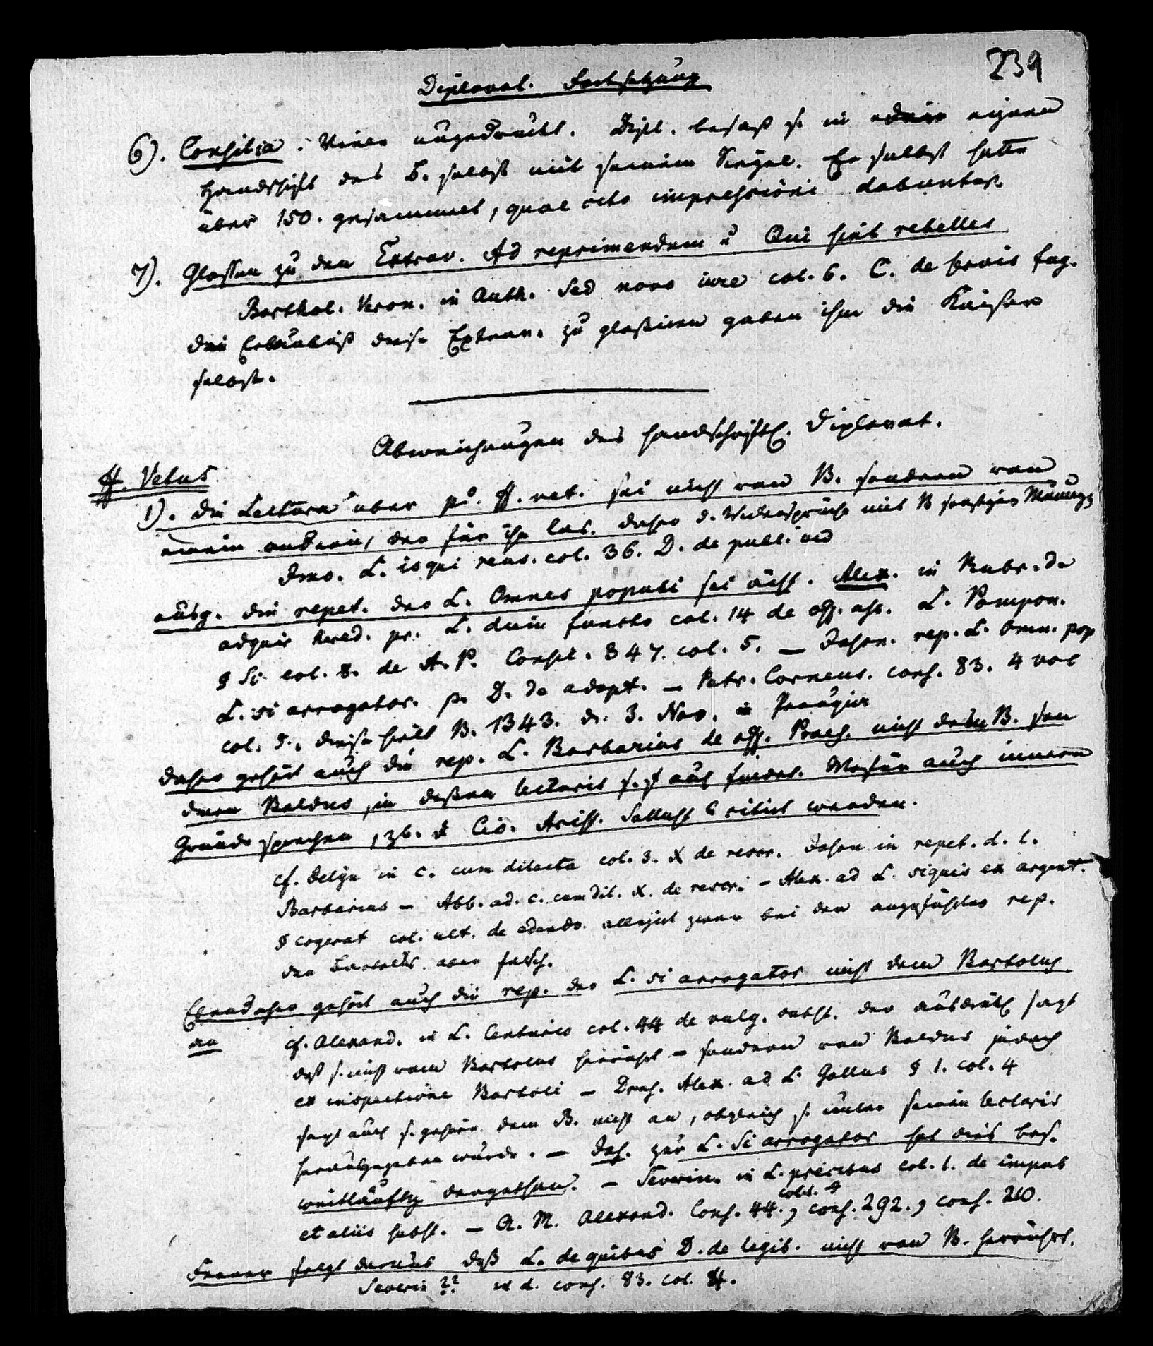 239
Diplovat. Fortsetzung
6). Consilia. Viele ungedruckt. Dipl. besaß sie in eigner
Handschrift des B. selbst mit seinem Siegel. Er selbst hatte
über 150. gesammelt, quae cito impressioni dabuntur.
7). Glossen zu den Extrav. Ad reprimendum u Qui sint rebelles
Barthol. Veron. in Auth. Sed novo iure col. 6. C. de servis fug.
Die Erlaubniß diese Extrav. zu glossiren gaben ihm die Kaiser
selbst.
Abweichungen des handschriftl. Diplovat.
ff. Vetus
1). Die Lectura über ff. vet. sei nicht von B. sondern von
einem andern, der für ihn las. daher d. Widersprüche mit B
L. is qui reus. col. 36. D. de publ. iud
die repet. der L. Omnes populi sei ächt. Alex. in Rubr. de
adquir hered. pr. L. cum fundo col. 14 de off. ass. L. Pompon.
§ Si col. 8. de A. P. Consil. 347. col. 5. — Jason. rep. L. Omn. pop
L. si arrogator. D. de adopt. — Petr. Corneus. cons. 83. 4 vol
col. diese hielt B. 1343. d. 3. Nov. in Perugia
Daher gehört auch die rep. L. Barbarius de off. Praet. nicht dem B. son
dern Baldus, in dessen lecturis sie sich auch findet. Wofür auch innere
Gründe sprechen, z. B. Cic. Arist. Sallust citirt werden.
cf. Felyn in c. cum dilecta col. 3. X de rescr. Jason in repet. d. l.
Barbarius — Abb. ad. c. cum dil. X. de rescr. — Alex. ad L. siquis ex argent.
§ cogerat col. ult. de edendo. allegirt zwar bei den angeführten rep.
den Bartolus aber falsch.
Ebendaher gehört auch die rep. der L. si arrogator nicht dem Bartolus
an
cf. Alexand. in L. Centurio col. 44 de vulg. subst. der ausdrücklich sagt
daß sie nicht vom Bartolus herrührt — sondern von Baldus
ex inspectione Bartoli — Alex. ad L. Gallus § 1. col. 4
sagt auch sie gehöre dem B. nicht an, obgleich sie unter seinen lecturis
herausgegeben würde. — Jas. zur L. Si arrogator hat dies bes.
weitläuftig dargethan. — Severin. in L. precibus col. 1. de impub
et aliis subst. — A. M. Alexand. Cons. 44. col. 4, cons. 292., cons. 210.
Ferner folgt daraus daß L. de quibus D. de legib. nicht von B. herrührt.
Severin ?? in d. cons. 83. col. 4.